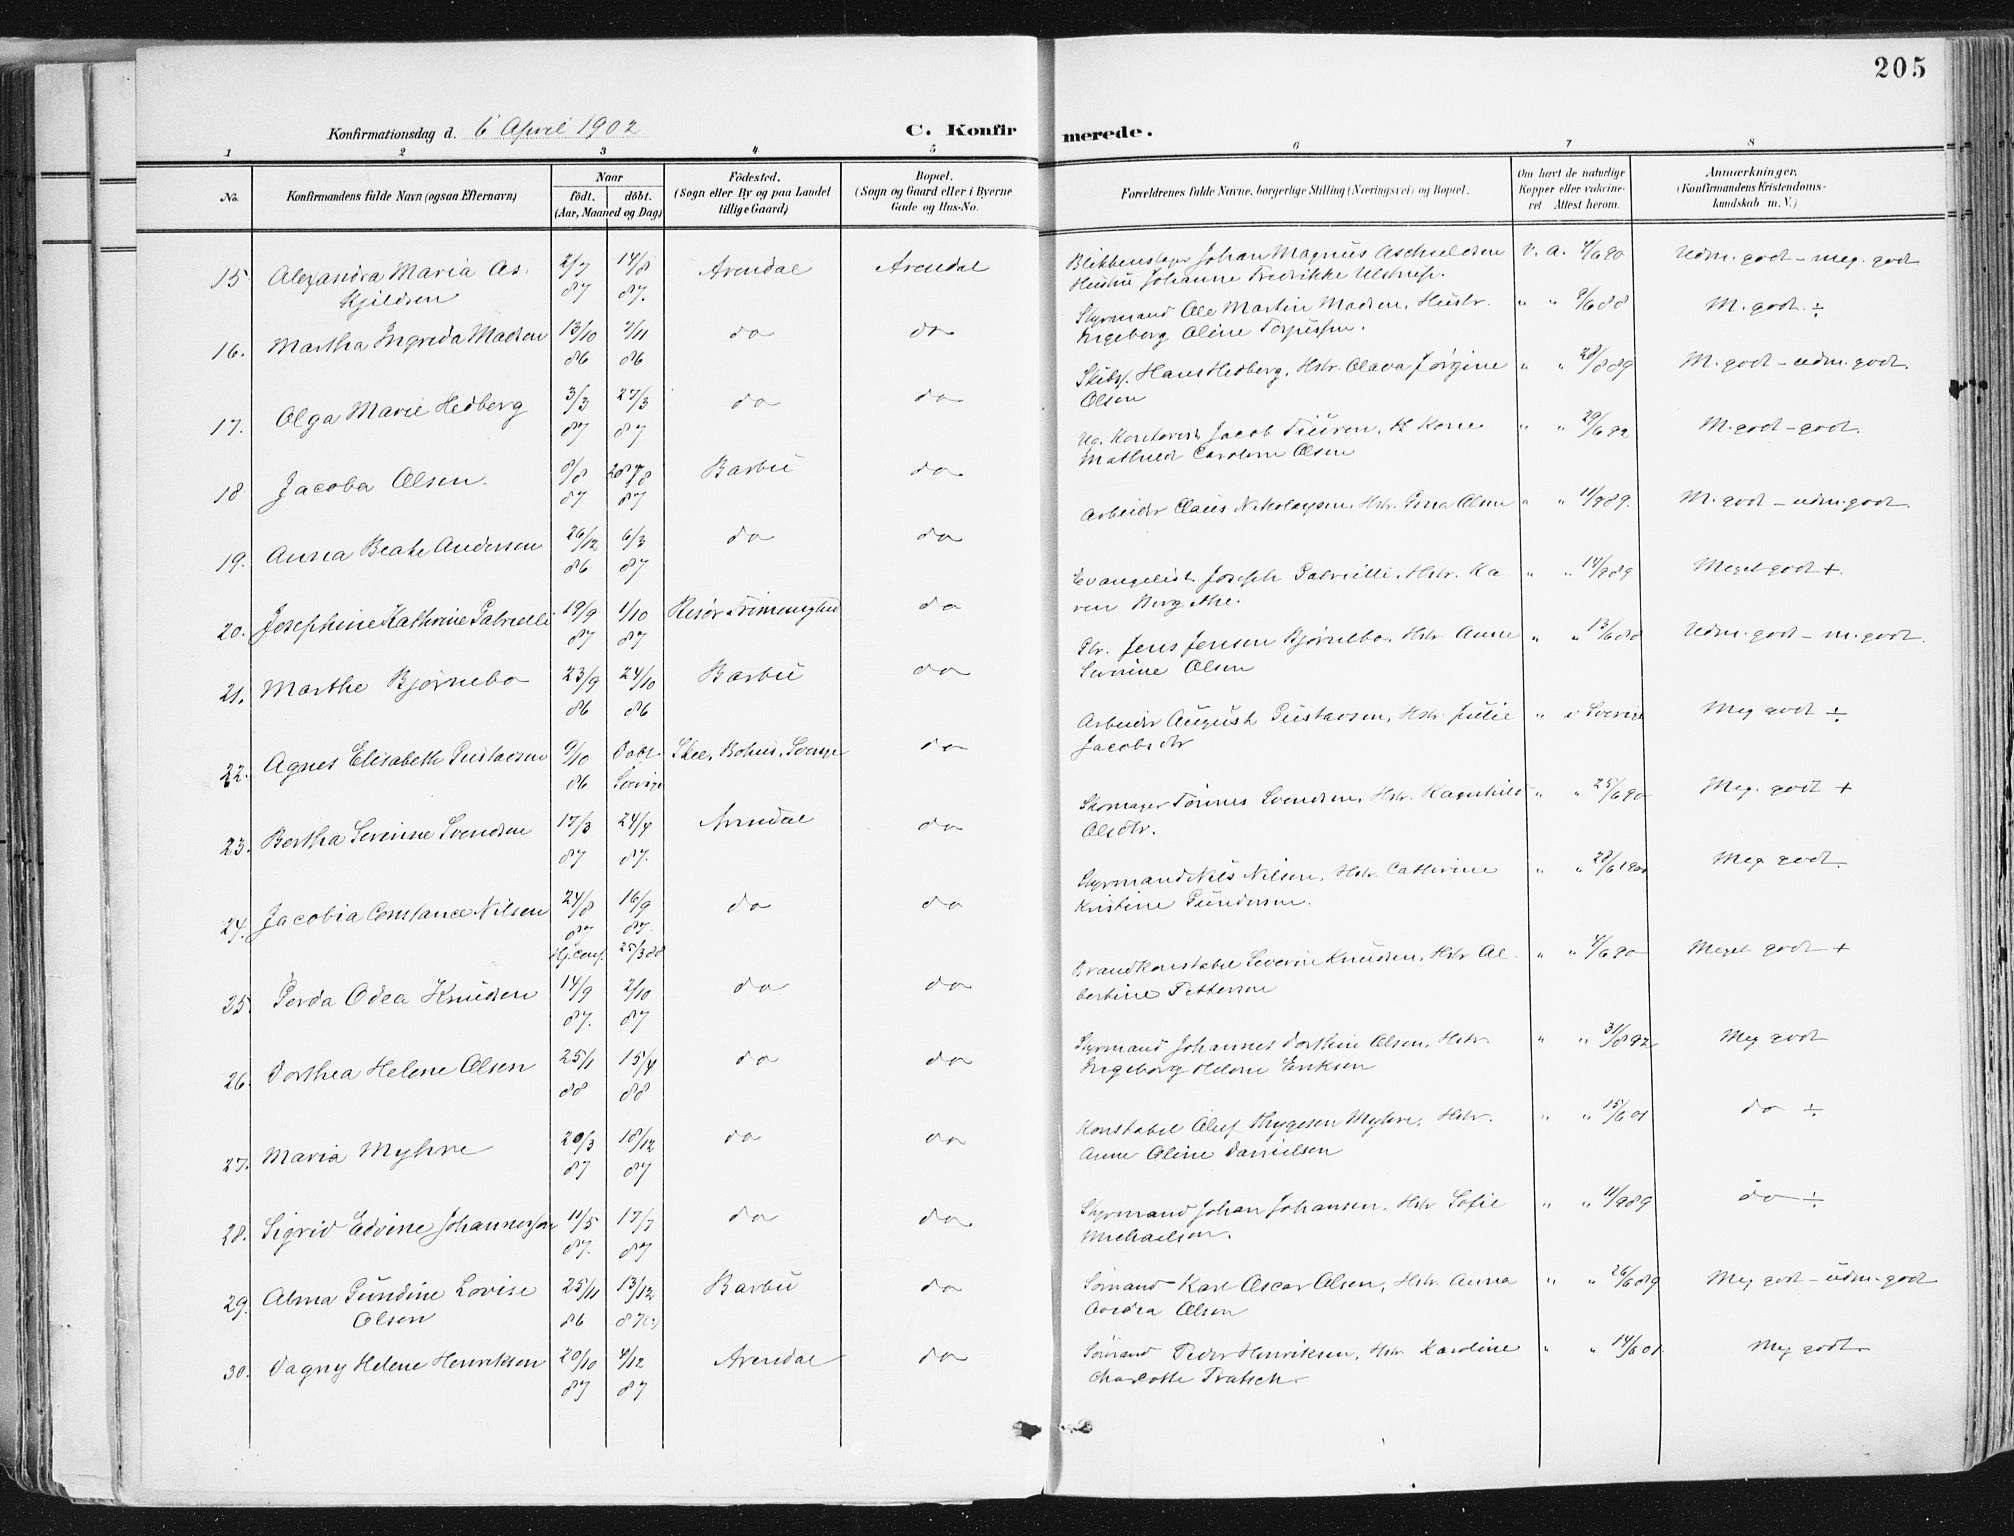 205
Konfirmationsdag d. 6 April 1902
C. Konfirmerede.
1 2 3 4 5 6 7 8
No. Konfirmandens fulde Navn (ogsaa Efternavn) Naar født. døbt. (Aar, Maaned og Dag) Fødested. (Sogn eller By og paa Landet tillige Gaard) Bopæl. (Sogn og Gaard eller i Byerne Gade og Hus-No. Forældrenes fulde Navne, borgerlige Stilling (Næringsvei) og Bopæl. Om havt de naturlige Kopper eller vaccineret Attest herom. Anmærkninger. (Konfirmandens Kristendomskundskab m. V.)
15. Alexandra Maria As- 2/7 14/8 Arendal Arendal Blikkenslager Johan Magnus Aschieldsen v. a. 4/6 90 Udm. godt - meg. godt
kjildsen 87 87. Hustru Johanne Fredrikke Ulstrup.
16. Martha Ingrida Madsen 13/10 7/11 do do Styrmand Ole Martin Madsen, Hustr. " " 9/6 88 M. godt ÷
86 86 Ingeborg Oline Torjussen.
17. Olga Marie Hedberg 3/3 27/3 do do Skibsf. Hans Hedberg, Hstr. Olava Jørgine " " 28/8 89 M. godt - udm. godt.
87 87 Olsen
18. Jacoba Olsen. 8/8 28/8 Barbu do Kontorist Jacob Tiuren, Kone " " 29/6 92 M. godt - godt.
87 87 Mathilde Caroline Olsen
19. Anna Beate Andersen 26/12 6/3 do do Arbeider Claus Nikolaysen, Hstr. Gina Olsen " " 11/9 89. M. godt - udm. godt.
86 87
20. Josephine Kathrine Gabrielli 19/9 1/10 Risør Frimenighed do Evangelist Joseph Gabrielli, Hstr. Ka- " " 14/9 89 Meget godt +.
87 87 ren Berg
21. Marthe Bjørnebo 23/9 24/10 Barbu do Jens Jensen Bjørnebo, Hstr. Anne " " 13/6 88 Udm. godt - m. godt.
86 86 Severine Olsen
22. Agnes Elisabeth Gustavsen 9/10 Døbt Skee, Bohus, Sverige do Arbeider August Gustavsen, Hstr. Julie " i Sverige Meg godt ÷
86 Sverige Jacobsdtr
23. Bertha Severine Svendsen 17/3 24/4 Arendal do Skomager Tønnes Svendsen, Hstr. Ragnhild " " 25/6 90 Meg. godt +
87 87. Olsdtr.
24. Jacobia Constance Nilsen 24/8 16/9 do do Styrmand Nils Nilsen, Hstr. Cathrine " " 28/6 1900 Meg godt
87 87. Kristine Gundersen.
Hj. conf. 25/3 88
25. Gerda Odea Knudsen 14/9 2/10 do do Brandkonstabel Severin Knudsen, Hstr Al- " " 4/6 90 Meget godt +
87. 87 bertine Pettersen
26. Dorthea Helene Olsen 25/1 15/4 do do Styrmand Johannes Dorthin Olsen, Hstr. " " 31/8 92 Meg godt
88 88 Ingeborg Helene Eriksen
27. Maria Myhre 20/3 18/12 do do Konstabel Oluf Thygesen Myhre, Hstr. " " 15/6 01 do ÷
87 87 Anne Oline Danielsen
28. Sigrid Edvine Johannessen 11/5 17/7 do do Styrmand Johan Johansen, Hstr Sofie " " 11/9 89 do ÷
87. 87 Michaelsen.
29. Alma Gundine Lovise 25/11 13/12 Barbu do Sømand Karl Oscar Olsen, Hstr. Anna " " 26/6 89 Meg godt - udm. godt
Olsen 86 87 Olsen
30. Dagny Helene Henriksen 20/10 4/12 Arendal do Sømand Peder Henriksen, Hstr Karoline " " 14/6 01 Meg godt.
87 87 Charlotte Pratsch.